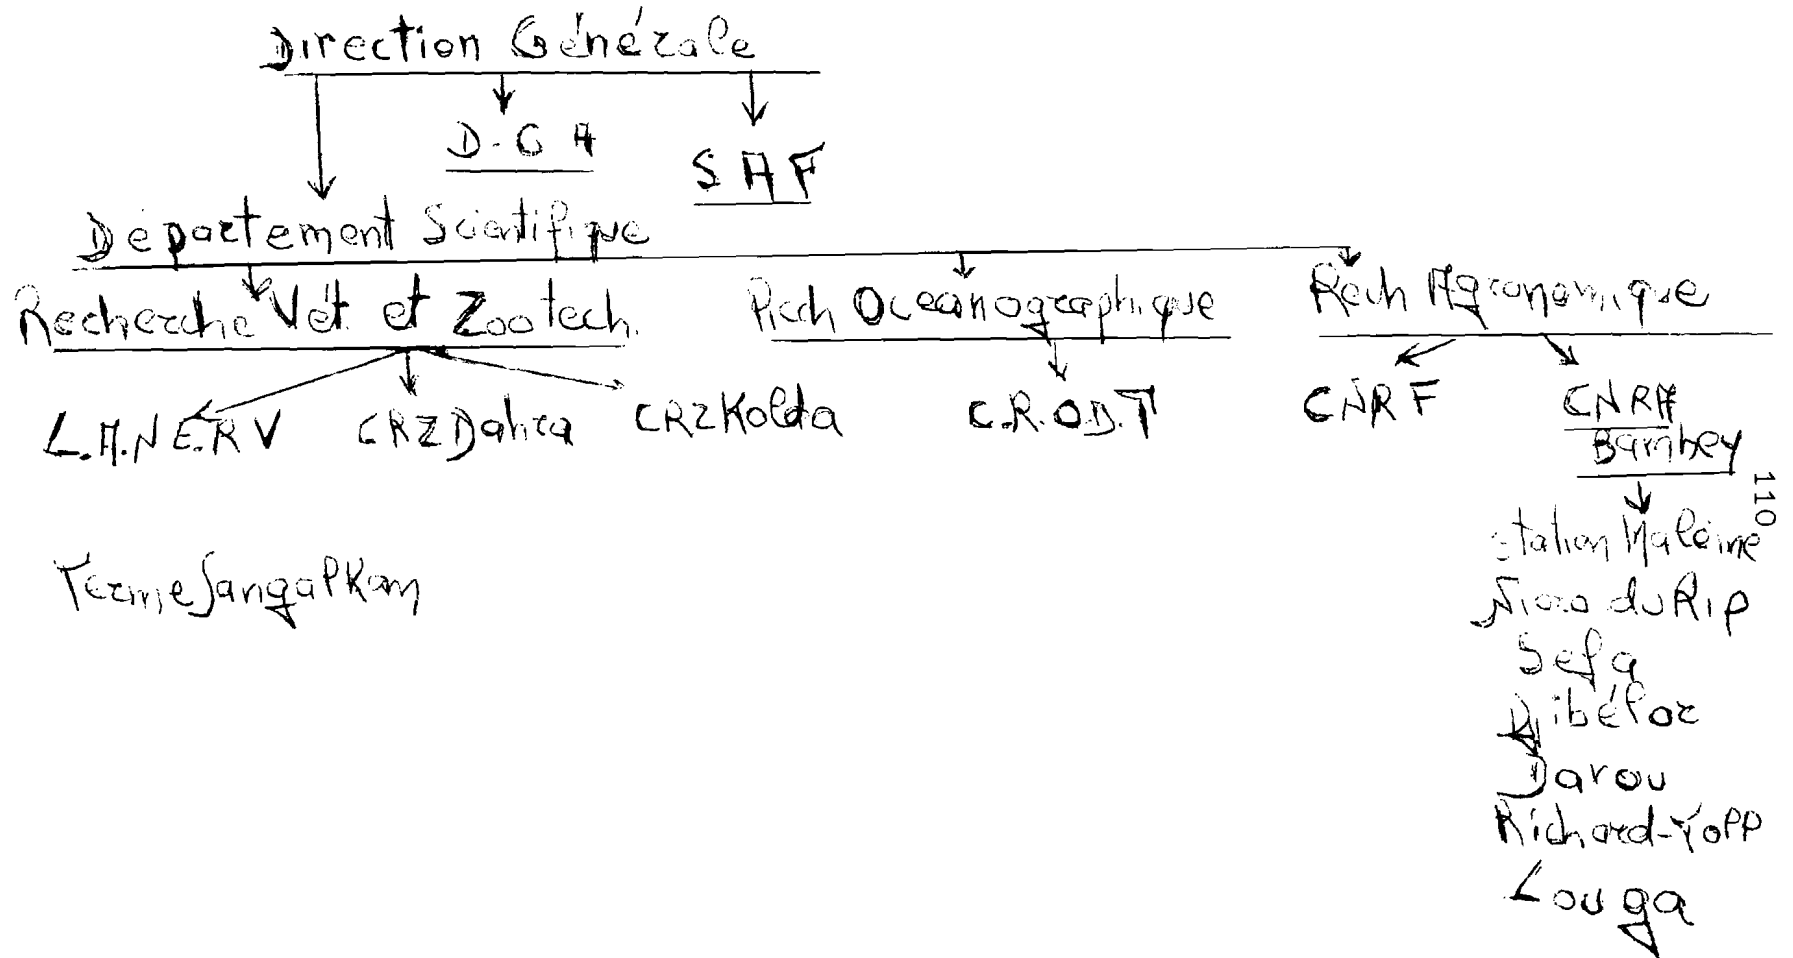 Direction Générale
D.G A
S A F
Département Scientifique
Recherche Vét. et Zootech.
Rech Oceanographique
Rech Agronomique
L.A.N.E.R V
CRZ Dahra
CRZ Kolda
C.R.O.D.T
CNRF
CNRA
Bambey
110
Station
Nioro du Rip
Sefa
Djibélor
Darou
Richard-Toll
Louga
Ferme Sangalkam